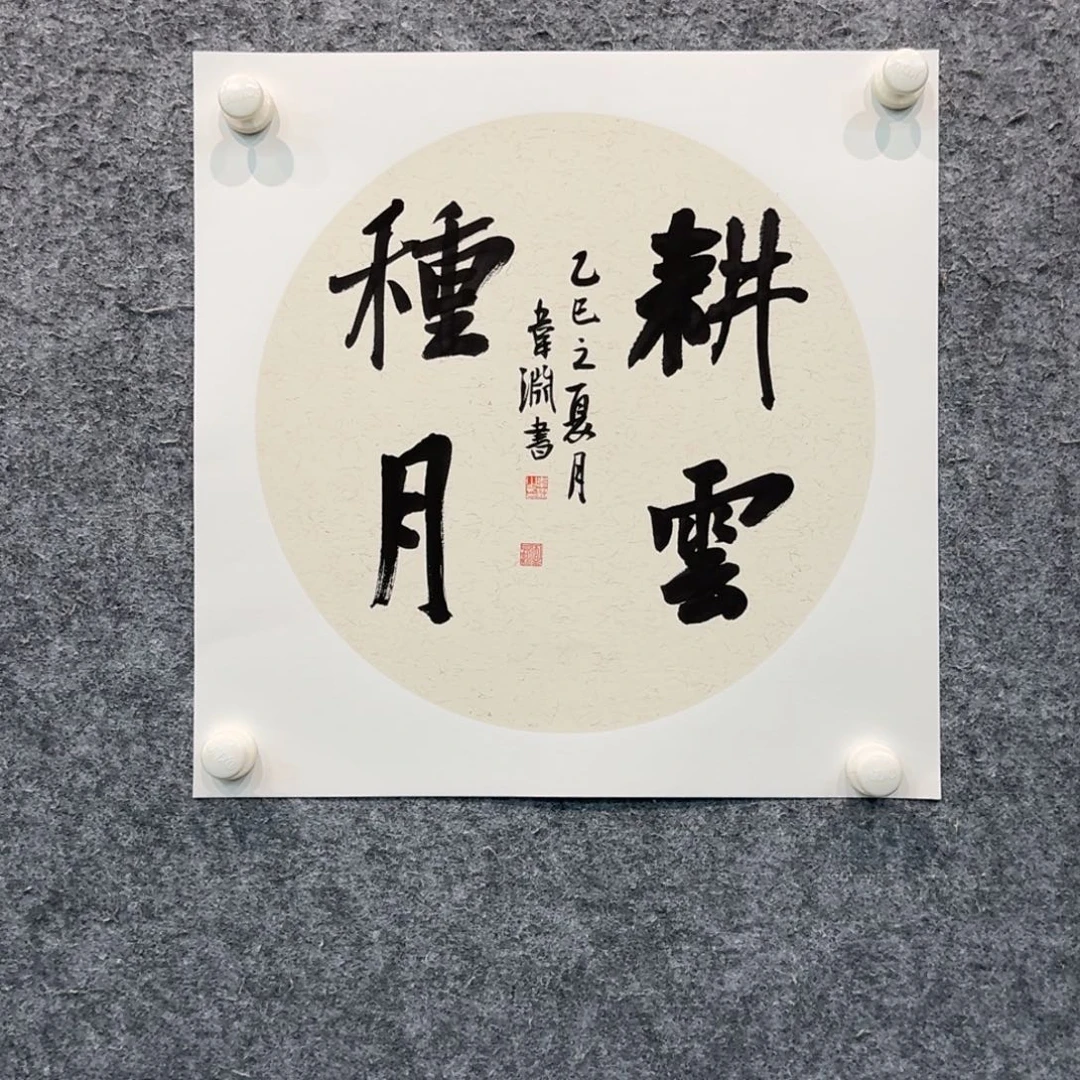 耕雲
種月
乙巳之夏月
韋淵書